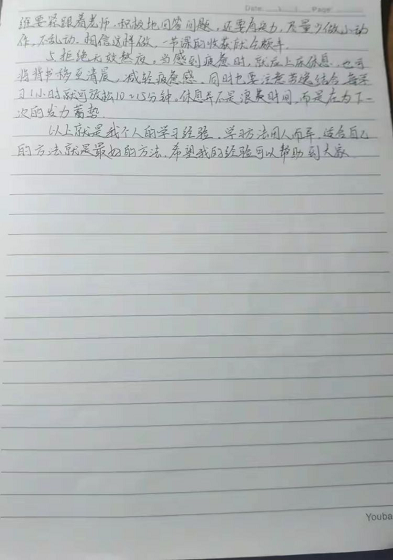 Date / / Page
谁要紧跟着老师,积极地回答问题,还要有定力,尽量少做小动
作,不乱动,相信这样做,一节课的收获就会颇丰.
5.拒绝无效熬夜,当感到疲惫时,就应上床休息,也可
将背书移至清晨,减轻疲惫感.同时也要注意劳逸结合,每学
习1小时就可放松10~15分钟,休息并不是浪费时间,而是在为下一
次的发力蓄势.
以上就是我个人的学习经验,学习方法因人而异,适合自己
的方法就是最好的方法.希望我的经验可以帮助到大家.
Youba